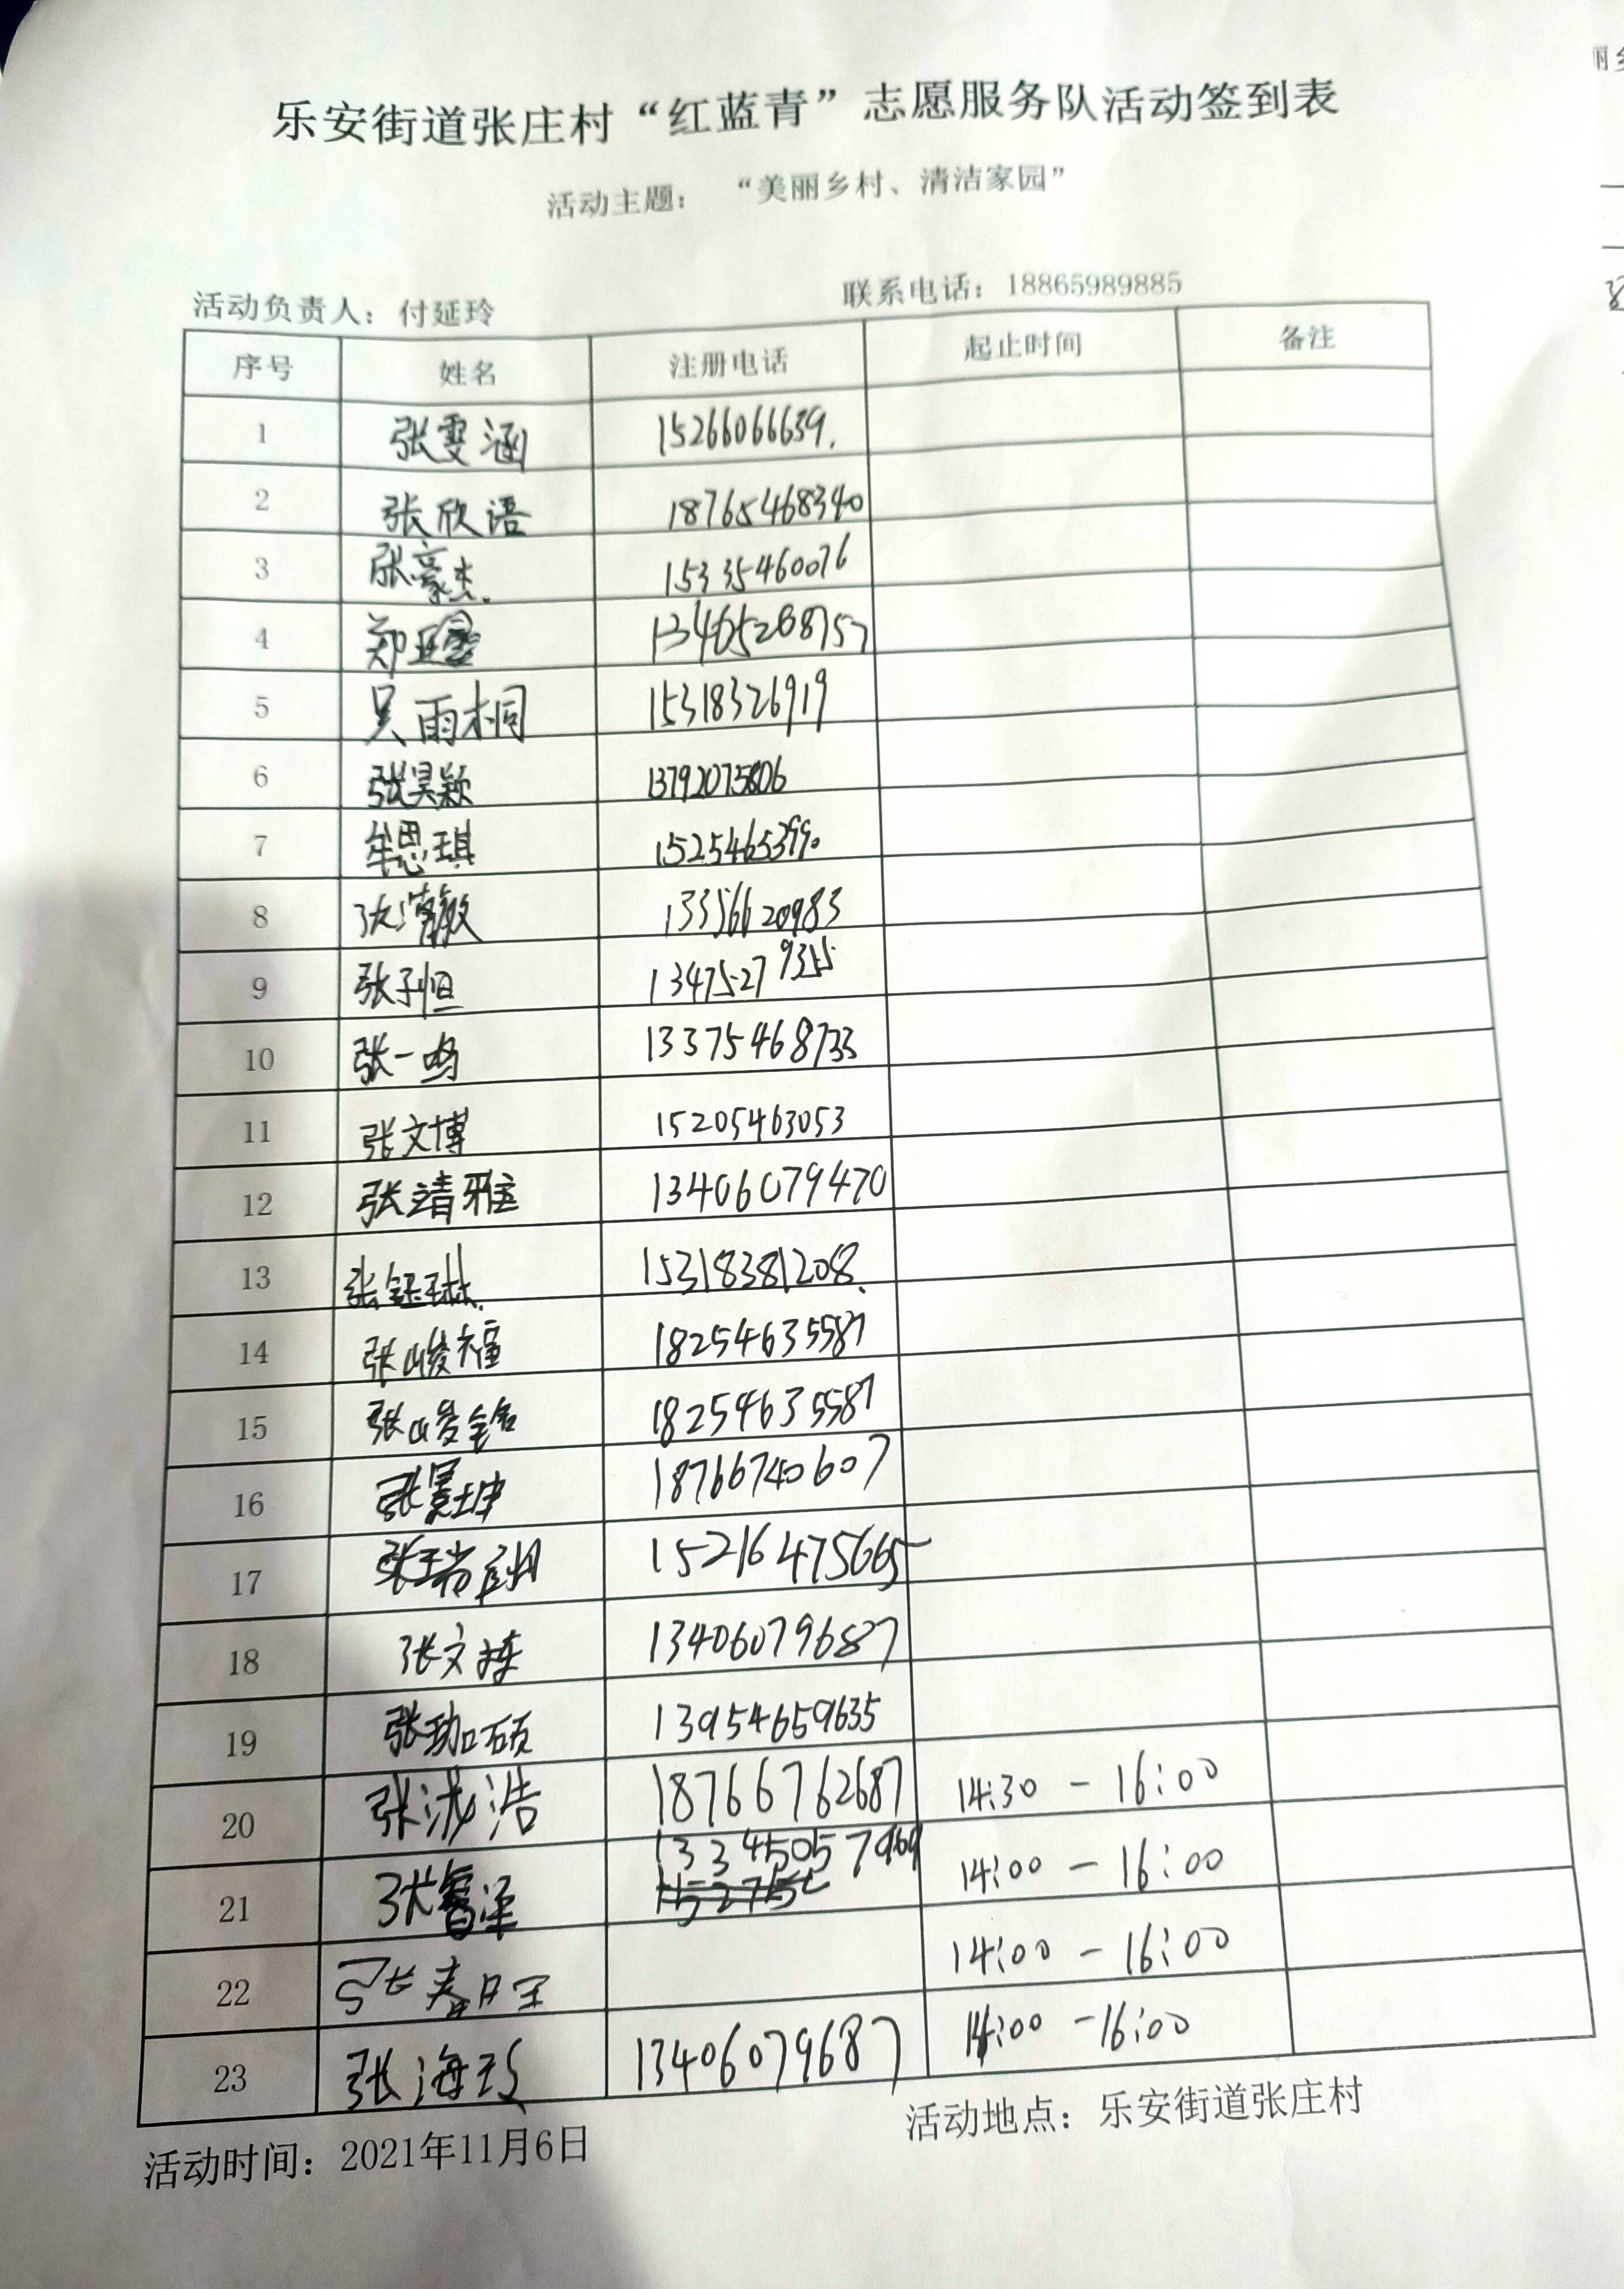 乐安街道张庄村“红蓝青”志愿服务队活动签到表
活动主题： “美丽乡村、清洁家园”
活动负责人：付延玲 联系电话：18865989885
序号 姓名 注册电话 起止时间 备注
1 张雯涵 15266066639.
2 张欣语 18765468340
3 张豪杰. 15335460076
4 郑 13465268757
5 吴雨桐 15318326919
6 张昊颖 13792075806
7 牟思琪 15254653990
8 张 敏 13356620983
9 张子恒 13475279355
10 张一鸣 13375468733
11 张文博 15205463053
12 张清雅 13406079470
13 张钰琳. 15318381208.
14 张峻福 18254635587
15 张峻铭 18254635587
16 张景坤 18766740607
17 张瑞 15216475665
18 张文栋 13406079687
19 张珈硕 13954659635
20 张浩 18766762687 14:30 - 16:00
21 张睿泽 14:00 - 16:00
22 张春玉 14:00 - 16:00
23 张海玲 13406079687 14:00 - 16:00
活动时间：2021年11月6日 活动地点：乐安街道张庄村